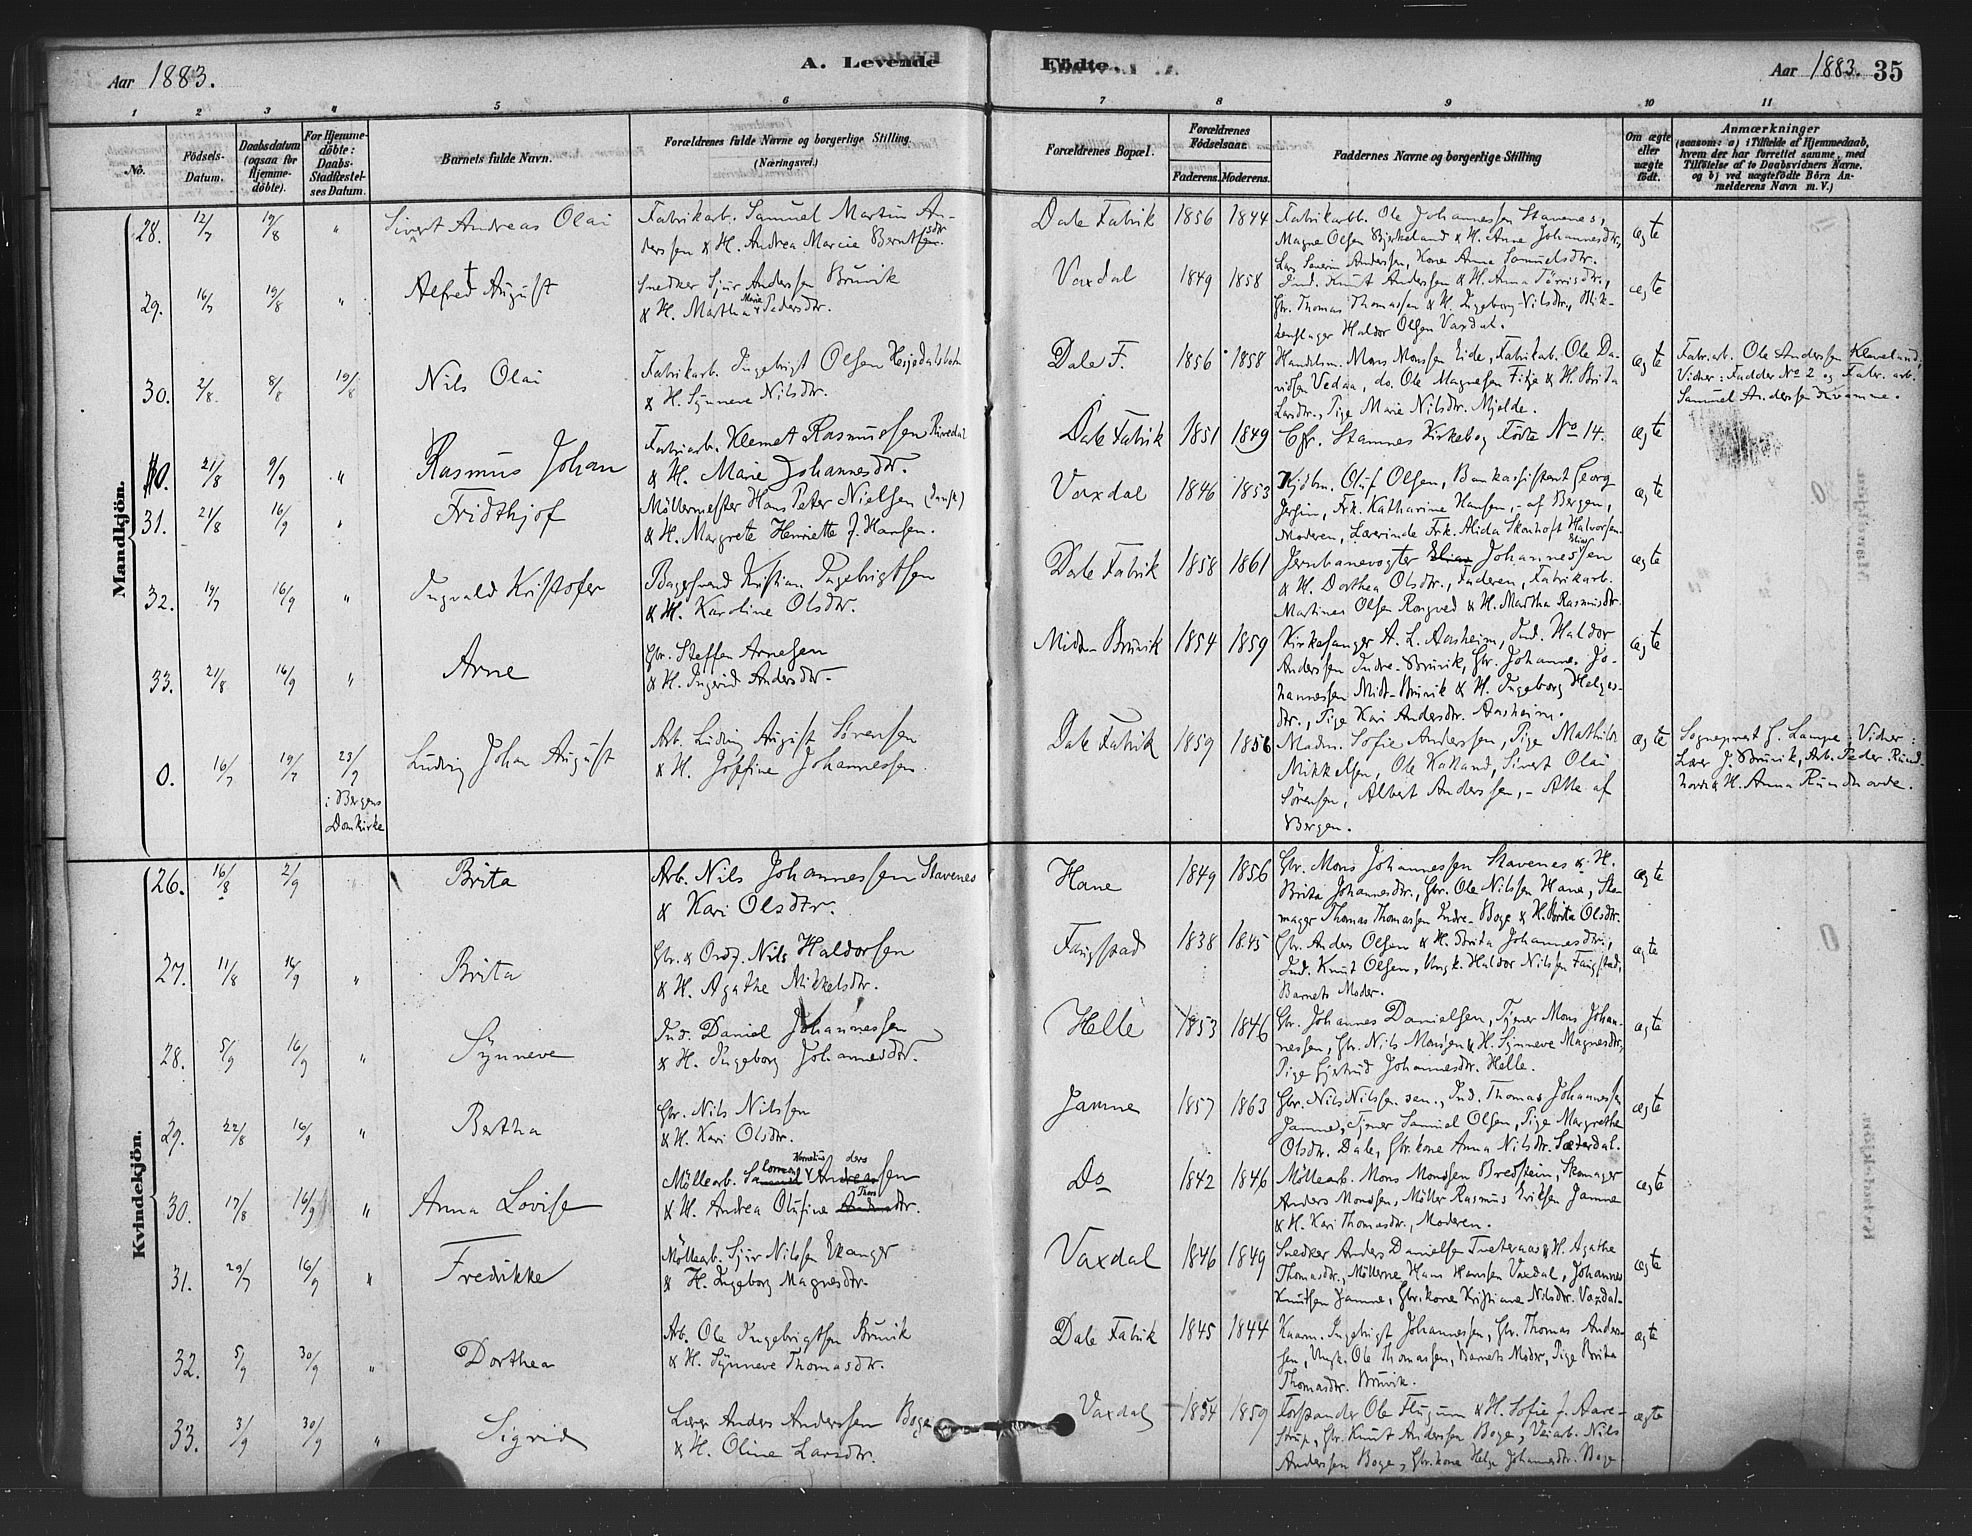 Aar 1883.
A. Levende
Födte.
Aar 1883. 35
1 2 3 4 5 6 7 8 9 10 11
No.
Födsels-
Datum.
Daabsdatum
(ogsaa for
Hjemme-
döbte).
For Hjemme-
döbte:
Daabs-
Stadfæstel-
ses Datum.
Barnets fulde Navn.
Forældrenes fulde Navne og borgerlige Stilling
(Næringsvei.)
Forældrenes Bopæl.
Forældrenes
Födselsaar.
Faderens. Moderens.
Faddernes Navne og borgerlige Stilling
Om ægte
eller
uægte
födt.
Anmærkninger
(saasom: a) i Tilfælde af Hjemmedaab,
hvem der har forrettet samme, med
Tilföielse af to Daabsvidners Navne.
og b) ved uægtefödte Börn An-
melderens Navn m. V.)
Mandkjön.
28. 12/7 19/8 " Sivert Andreas Olai
Fabrikarb. Samuel Martin An-
derssen & H. Andrea Marcie Berntsendtr.
Dale Fabrik 1856 1844
Fabrikarb. Ole Johannessen Stavenes,
Magne Olsen Bjerkeland & H. Anne Johannesdtr.,
Lars Severin Anderssen, Kone Anna Samuelsdtr.
ægte
29. 16/7 19/8 " Alfred August
Snedker Sjur Anderssen Bruvik
& H. Martha Marie Pedersdtr.
Vaxdal 1849 1858
Ind. Knut Anderssen & H. Anna Törrisdtr.,
Gbr. Thomas Thomassen & H. Ingeborg Nilsdtr., Blik-
kenslager Haldor Olsen Vaxdal.
ægte
30. 2/8 8/8 19/8 Nils Olai
Fabrikarb. Ingebrigt Olsen Hesjedalsbotn
& H. Synneve Nilsdtr.
Dale F. 1856 1858
Handelsm. Mons Monssen Eide, Fabrikarb. Ole Da-
vidsen Vedaa, do. Ole Magnesen Fitje & H. Brita
Larsdtr., Pige Marie Nilsdtr. Mjelde.
ægte
Fabr.arb. Ole Anderssen Kleveland;
Vidner: Fadder No 2 og Fabr. arb.
Samuel Anderssen Kvamme.
0. 21/8 9/9 " Rasmus Johan
Fabriarb. Klemet Rasmussen
& H. Marie Johannesdtr.
Dale Fabrik 1851 1849
Cfr. Stamnes Kirkebog Födte No 14.
ægte
31. 21/8 16/9 " Fridthjof
Möllermester Hans Peter Nielsen (dansk)
& H. Margrete Henriette f. Hansen.
Vaxdal 1846 1853
Kjöbm. Oluf Olsen, Bankassistent Georg
Jersin, Frk. Katharine Hansen,- af Bergen,
Moderen, Lærerinde Frk. Alida Skonhoft Halvorsen.
ægte
32. 19/7 16/9 " Ingvald Kristofer
Bagersvend Kristian Ingebrigtsen
& H. Karoline Olsdtr.
Dale Fabrik 1858 1861
Jernbanevogter Elias Johannessen
& H. Dorthea Olsdtr., Faderen, Fabrikarb.
Martinus Olsen Rongved & H. Martha Rasmusdtr.
ægte
33. 21/8 16/9 " Arne
Gbr. Steffen Arnesen
& H. Ingerid Andersdtr.
Midt-Bruvik 1854 1859
Kirkesanger A. L. Aasheim, Ind. Haldor
Anderssen Indre-Bruvik, Gbr. Johannes Jo-
hannessen Midt-Bruvik & H. Ingeborg Helges-
dtr., Pige Kari Andersdtr. Aasheim.
ægte
0. 16/7 19/7 23/9 Ludvig Johan August
i Bergens
Domkirke
Arb. Ludvig August Sörensen
& H. Josefine Johannessen.
Dale Fabrik 1859 1856
Madm. Sofie Anderssen, Pige Mathilde
Mikkelsen, Ole Kalland, Sivert Olai
Sörensen, Albert Anderssen,- Alle af
Bergen.
ægte
Sogneprest G. Lampe; Vidner:
Lærer J. Bruvik, Arb. Peder Rund-
hovde & H. Anna Rundhovde.
Kvindekjön.
26. 16/8 2/9 " Brita
Arb. Nils Johannessen Stavenes
& Kari Olsdtr.
Hane 1849 1856
Gbr. Mons Johannessen Stavenes & H.
Brita Johannesdtr., Gbr. Ole Nilssen Hane, Sko-
mager Thomas Thomassen Indre-Boge & H. Brita Olsdtr.
ægte
27. 11/8 16/9 " Brita
Gbr. & Ordf. Nils Haldorsen
& H. Agathe Mikkelsdtr.
Fangstad 1838 1845
Gbr. Anders Olsen & H. Brita Johannesdtr.,
Ind. Knut Olsen, Ungk. Haldor Nilssen Fangstad,
Barnets Moder.
ægte
28. 5/9 16/9 " Synneve
Ind. Daniel Johannessen
& H. Ingeborg Johannesdtr.
Helle 1853 1846
Gbr. Johannes Danielsen, Tjener Mons Johan-
nessen, Gbr. Nils Monsen & H. Synneve Magnesdtr.,
Pige Gjertrud Johannesdtr. Helle.
ægte
29. 22/8 16/9 " Bertha
Gbr. Nils Nilssen
& H. Kari Olsdtr.
Jamne 1857 1863
Gbr. Nils Nilssen sen., Ind. Thomas Johannessen
Jamne, Tjener Samuel Olsen, Pige Margrethe
Olsdtr. Dale, Gbr.kone Anna Nilsdtr. Sæterdal.
ægte
30. 17/8 16/9 " Anna Lovise
Möllearb. Andersen
& H. Andrea Olufine Thorsdtr.
Do 1842 1846
Möllearb. Mons Monsen Bredstein, Skomager
Anders Monsen, Möller Rasmus Eriksen Jamne
& H. Kari Thomasdtr., Moderen.
ægte
31. 29/7 16/9 " Fredrikke
Möllearb. Sjur Nilssen Ekanger
& H. Ingeborg Magnesdtr.
Vaxdal 1846 1849
Snedker Anders Danielsen Tveteraas & H. Agathe
Thomasdtr., Möllerne Hans Hanssen Vaxdal, Johannes
Knutsen Jamne, Gbr.kone Kristiane Nilsdtr. Vaxdal.
ægte
32. 5/9 30/9 " Dorthea
Arb. Ole Ingebrigtsen Bruvik
& H. Synneve Thomasdtr.
Dale Fabrik 1845 1844
Kaarm. Ingebrigt Johannessen, Gbr. Thomas Anders-
sen, Ungk. Ole Thomassen, Barnets Moder, Pige Brita
Thomasdtr. Bruvik.
ægte
33. 3/9 30/9 " Sigrid
Lærer Anders Anderssen Boge
& H. Oline Larsdtr.
Vaxdal 1854 1859
Forstander Ole Flugum & H. Sofie f. Aare-
strup, Gbr. Knut Anderssen Boge, Veiarb. Nils
Anderssen Boge, Gbr.kone Helga Johannesdtr. Boge.
ægte